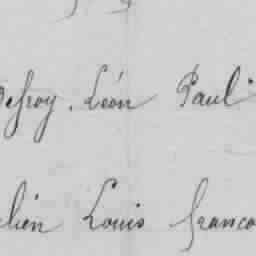 Defroy. Léon Paul
lien Louis franco